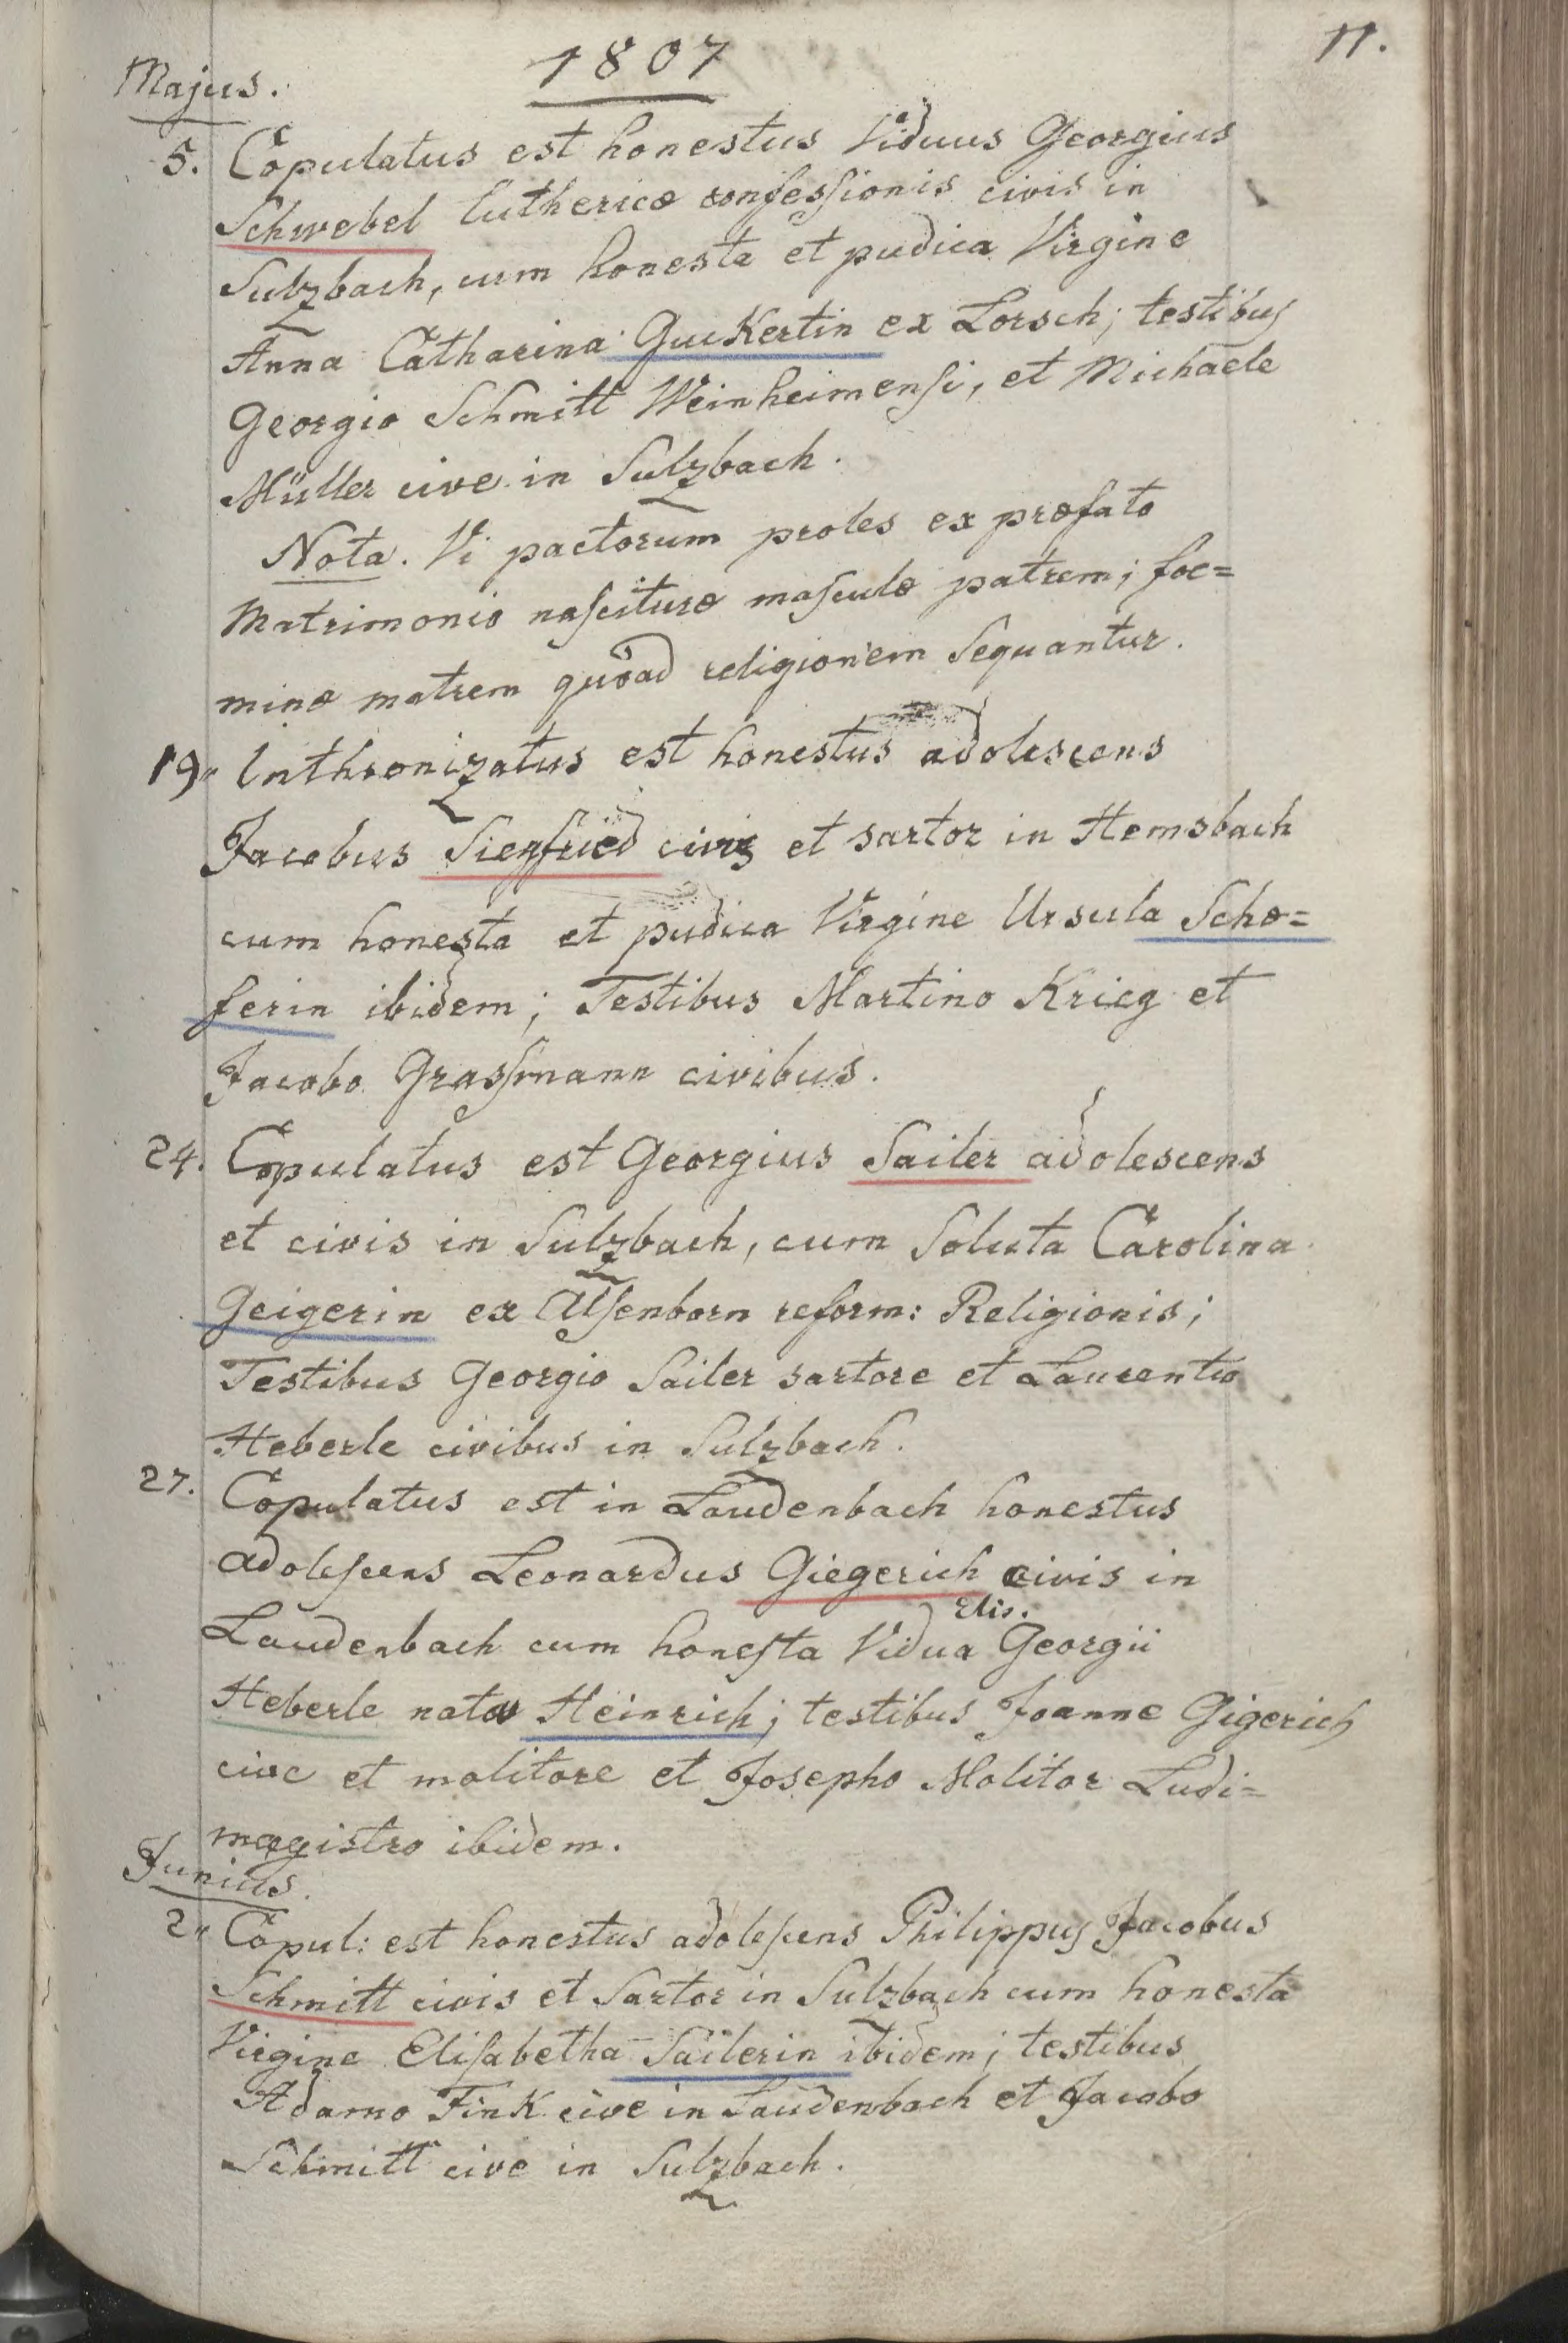 1807
11.
Majus.
5. Copulatus est honestus Viduus Georgius
Schwebel Luthericæ confessionis civis in
Sulzbach, cum honesta et pudica Virgine
Anna Catharina Guckertin ex Lorsch; testibus
Georgio Schmitt Weinheimensi, et Michaele
Müller cive in Sulzbach.
Nota. Vi pactorum proles ex præfato
Matrimonio nascituræ masculæ patrem; foe=
minæ matrem quoad religionem Sequantur.
19. Inthronizatus est honestus adolescens
Jacobus Siegfried civis et sartor in Hemsbach
cum honesta et pudica Virgine Ursula Schæ=
ferin ibidem; Testibus Martino Krieg et
Jacobo Grassmann civibus.
24. Copulatus est Georgius Sailer adolescens
et civis in Sulzbach, cum Soluta Carolina
Geigerin ex Alsenborn reform: Religionis;
Testibus Georgio Sailer sartore et Laurentio
Heberle civibus in Sulzbach.
27. Copulatus est in Laudenbach honestus
adolescens Leonardus Giegerich civis in
Elis.
Laudenbach cum honesta Vidua Georgii
Heberle nata Heinrich; testibus Joanne Gigerich
cive et molitore et Josepho Molitor Ludi=
magistro ibidem.
Junius.
2. Copul: est honestus adolescens Philippus Jacobus
Schmitt civis et Sartor in Sulzbach cum honesta
Virgine Elisabetha Sailerin ibidem; testibus
Adamo Fink cive in Laudenbach et Jacobo
Schmitt cive in Sulzbach.